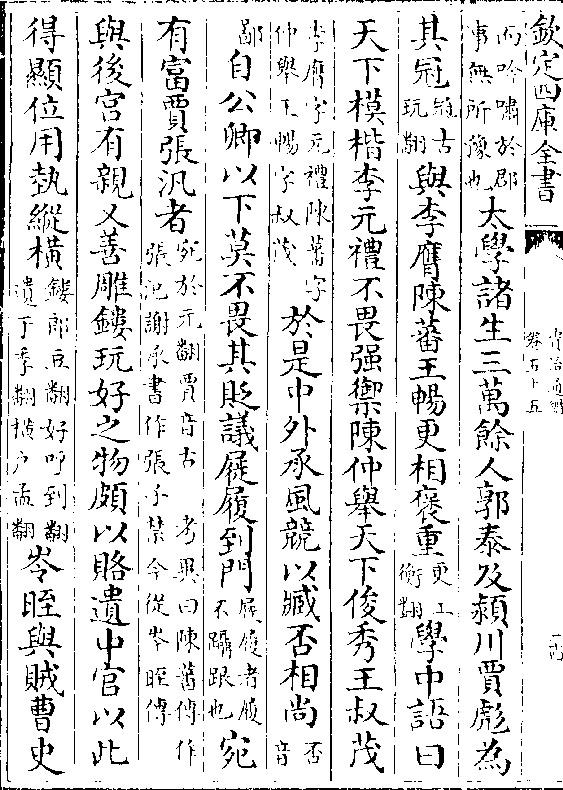 欽定四庫全書
資治通鑑
卷五十五
而吟嘯於郡
事無所豫也太學諸生三萬餘人郭泰及潁川賈彪為
其冠冠古
玩翻與李膺陳蕃王暢更相褒重更工
衡翻學中語曰
天下模楷李元禮不畏强禦陳仲舉天下俊秀王叔茂
李膺字元禮陳蕃字
仲舉王暢字叔茂於是中外承風競以臧否相尚否
音
鄙自公卿以下莫不畏其貶議屣履到門屣履者履
不躡跟也宛
有富賈張汎者宛於元翻賈音古 考異曰陳蕃傳作
張氾謝承書作張子禁今從岑晊傳
與後宫有親又善雕鏤玩好之物頗以賂遺中官以此
得顯位用埶縱橫鏤郎豆翻好呼到翻
遺于季翻橫户孟翻岑晊與賊曹史